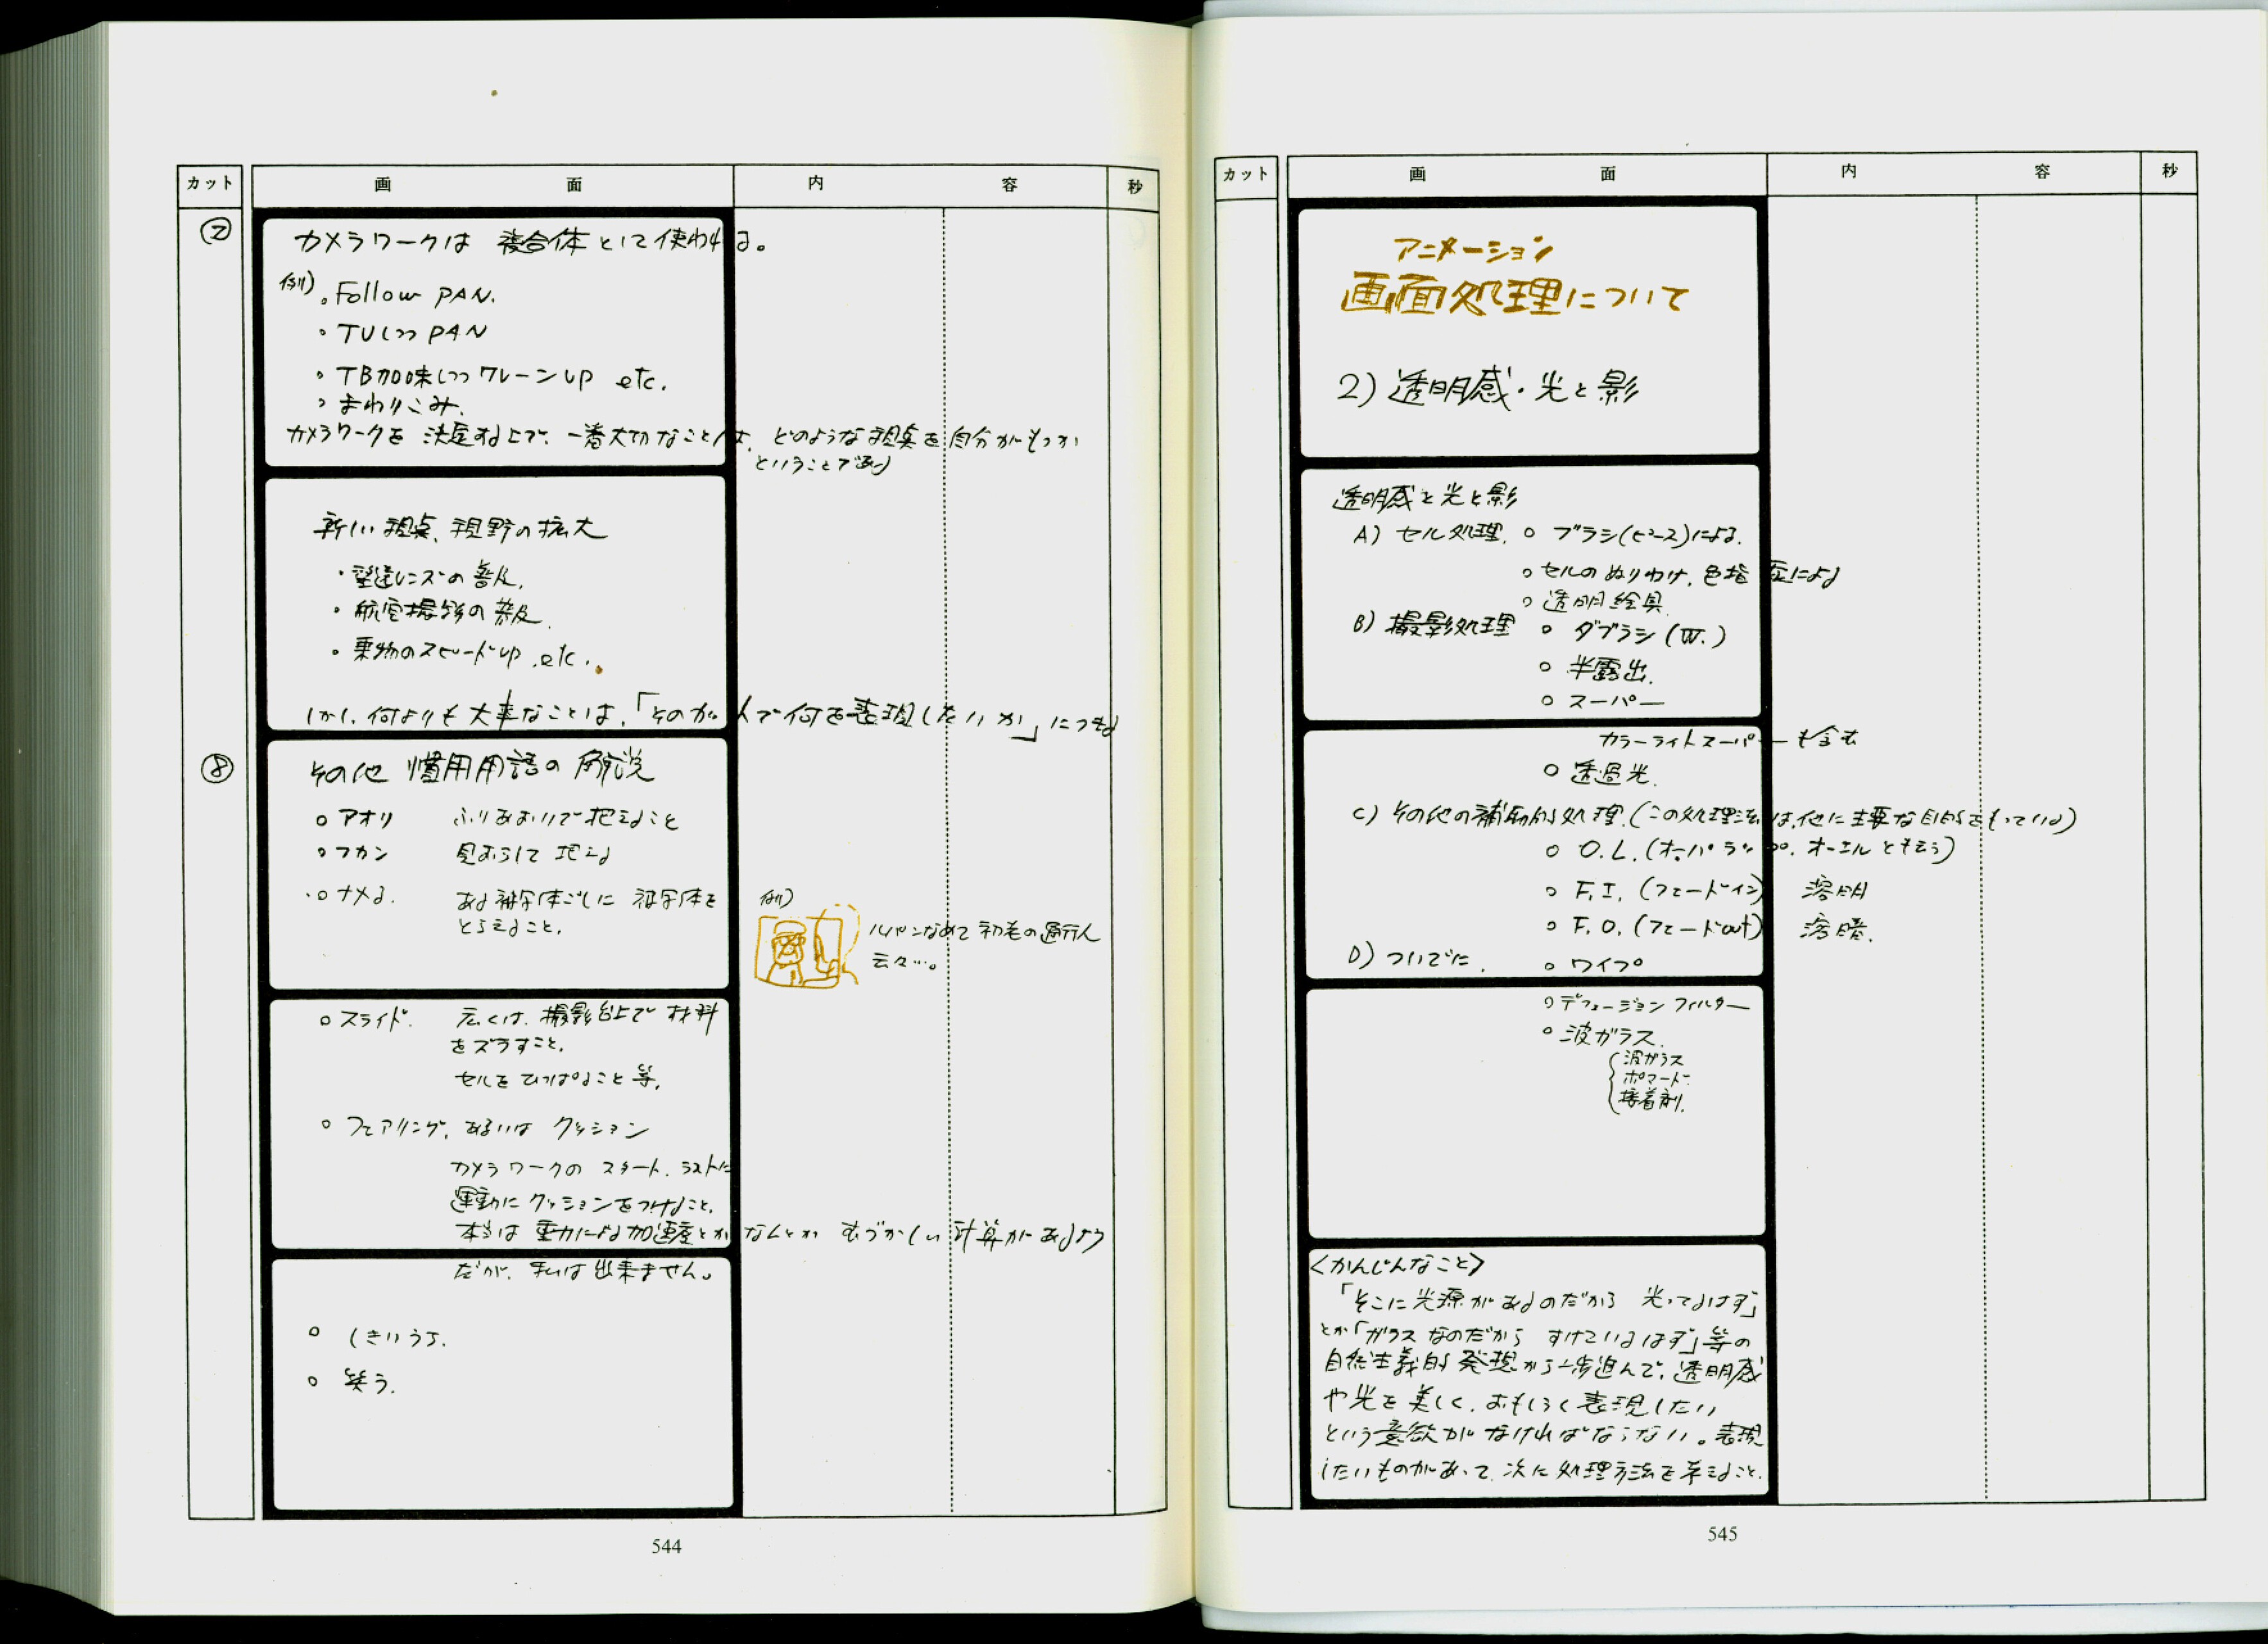 カット 画 面 内 容 秒
⑦
カメラワークは 複合体として使われる。
例)。Follow PAN.
。TUしつつ PAN
。TB加味しつつクレーンup etc.
。まわりこみ.
カメラワークを 決定する上で、一番大切なことは、どのような視点を自分がもつか
ということである
新しい視点、視野の拡大
・望遠レンズの普及.
・航空撮影の普及.
・乗物のスピードup.etc.
しかし、何よりも大事なことは、「そのカットで何を表現したいか」につきる
⑧
その他 慣用用語の解説
○アオリ ふりあおいで捉えること
○フカン 見おろして捉える
○ナメる. ある被写体ごしに 被写体を
とらえること.
例)
ルパンなめて初老の通行人
云々…。
○スライド. 広くは、撮影台上で材料
をズラすこと.
セルをひっぱること等.
○フェアリング、あるいは クッション
カメラワークの スタート、ラストに
運動にクッションをつけること.
本当は重力による加速度とかなんとか むづかしい計算があるよう
だが、私は出来ません。
○ しきいうち.
○ 笑う.
544
カット 画 面 内 容 秒
アニメーション
画面処理について
2) 透明感・光と影
透明感と光と影
A) セル処理. ○ ブラシ(ピース)による.
○セルのぬりわけ、色指定による
○透明絵具
B) 撮影処理 ○ ダブラシ (W.)
○ 半露出.
○ スーパー
カラーライトスーパーも含む
○ 透過光.
C) その他の補助的処理.(この処理法は、他に主要な目的をもっている)
○ O.L. (オーバーラップ. オーエルとも云う)
○ F.I. (フェードイン) 溶明
○ F.O. (フェードout) 溶暗.
D) ついでに. ○ ワイプ
○デフュージョンフィルター
○ 波ガラス.
波ガラス
ポマード
接着剤.
<かんじんなこと>
「そこに光源があるのだから 光ってるはず」
とか「ガラスなのだから すけているはず」等の
自然主義的発想から一歩進んで、透明感
や光を美しく、おもしろく表現したい
という意欲がなければならない。表現
したいものがあって、次に処理方法を考えること.
545